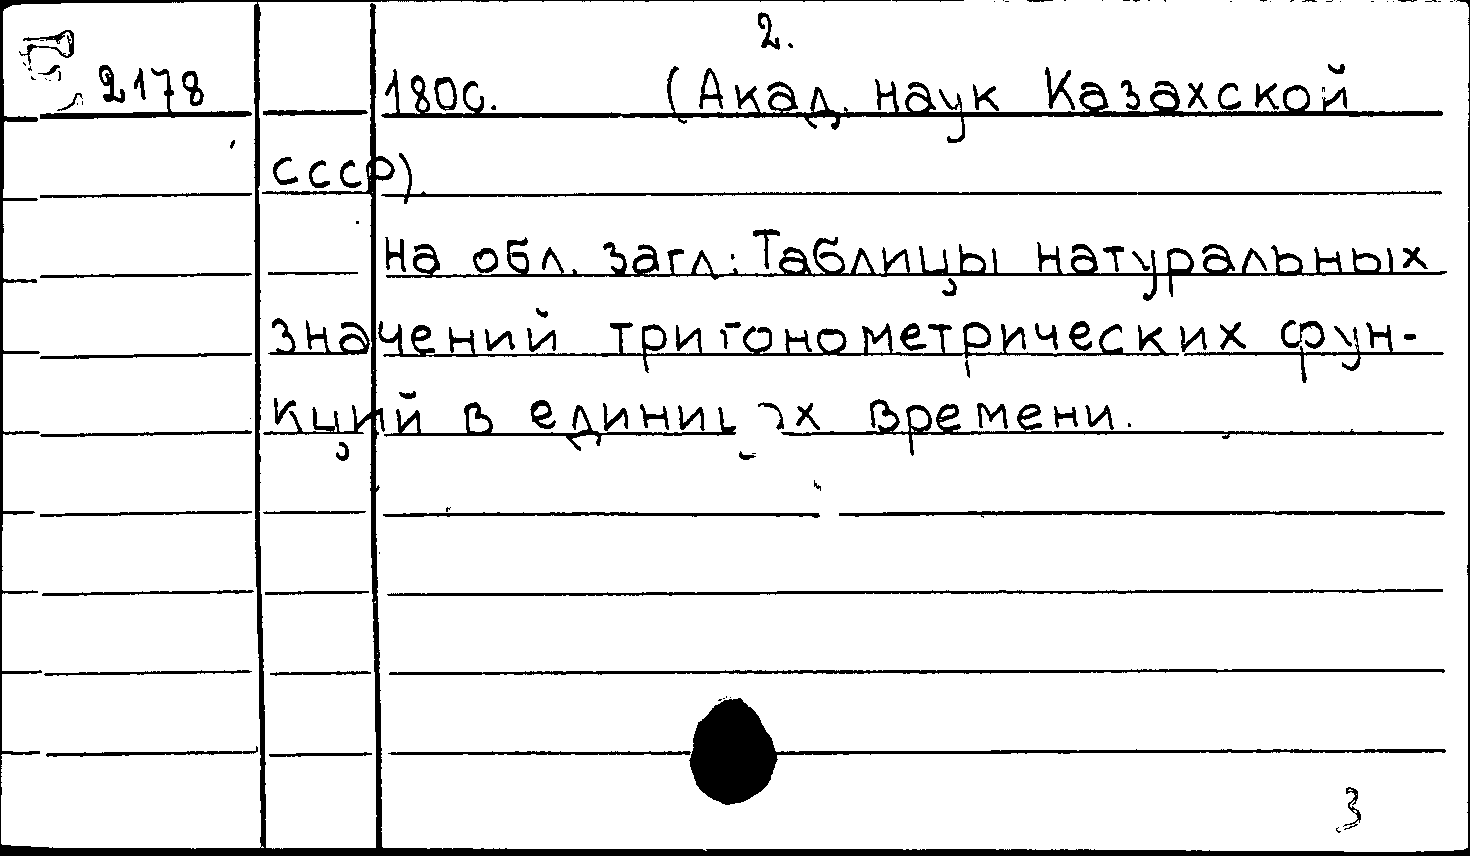 2.
2178 180с. (Акад. наук Казахской
СССР).
На обл. загл.: Таблицы натуральных
значений тригонометрических фун-
кций в единицах времени.
3